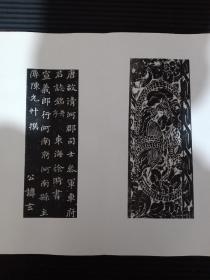 唐故清河郡司士參軍東府
君誌銘 東海徐時書
宣義郎行河南府河南縣主
簿陳允升撰
公諱言